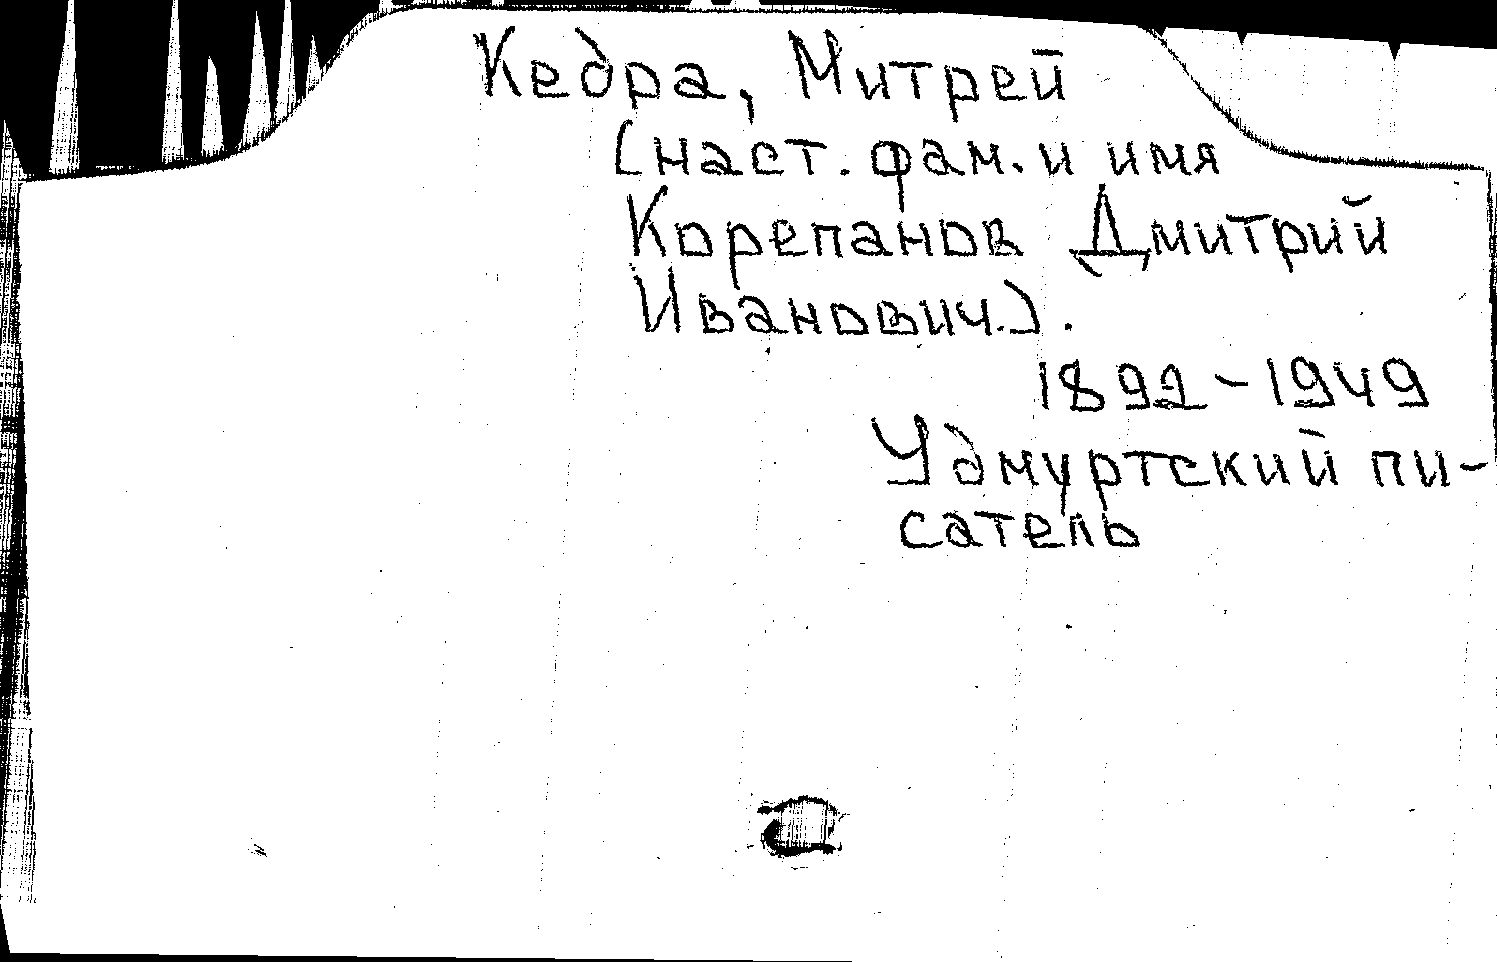 Кедра, Митрей
(наст. фам. и имя
Корепанов Дмитрий
Иванович.).
1892-1949
Удмуртский пи-
сатель